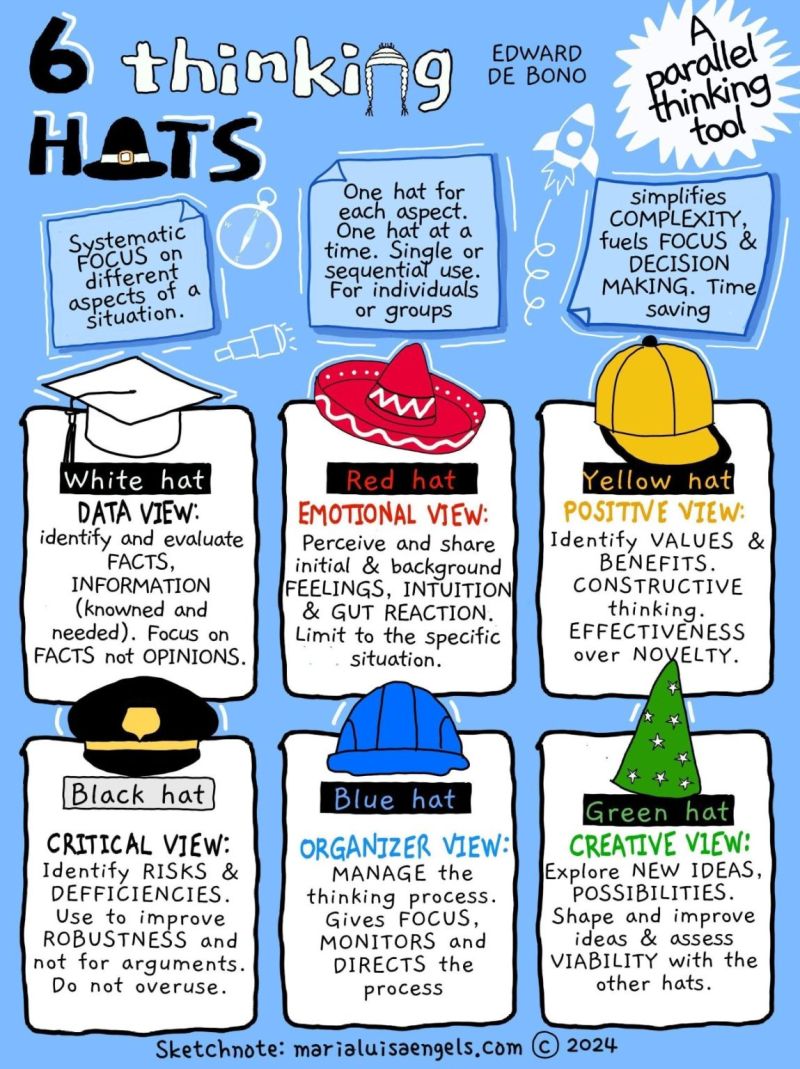 6 thinking
HATS
EDWARD
DE BONO
A
parallel
thinking
tool
Systematic
FOCUS on
different
aspects of a
situation.
One hat for
each aspect.
One hat at a
time. Single or
sequential use.
For individuals
or groups
simplifies
COMPLEXITY,
fuels FOCUS &
DECISION
MAKING. Time
saving
White hat
DATA VIEW:
identify and evaluate
FACTS,
INFORMATION
(knowned and
needed). Focus on
FACTS not OPINIONS.
Red hat
EMOTIONAL VIEW:
Perceive and share
initial & background
FEELINGS, INTUITION
& GUT REACTION.
Limit to the specific
situation.
Yellow hat
POSITIVE VIEW:
Identify VALUES &
BENEFITS.
CONSTRUCTIVE
thinking.
EFFECTIVENESS
over NOVELTY.
Black hat
CRITICAL VIEW:
Identify RISKS &
DEFFICIENCIES.
Use to improve
ROBUSTNESS and
not for arguments.
Do not overuse.
Blue hat
ORGANIZER VIEW:
MANAGE the
thinking process.
Gives FOCUS,
MONITORS and
DIRECTS the
process
Green hat
CREATIVE VIEW:
Explore NEW IDEAS,
POSSIBILITIES.
Shape and improve
ideas & assess
VIABILITY with the
other hats.
Sketchnote: marialuisaengels.com © 2024